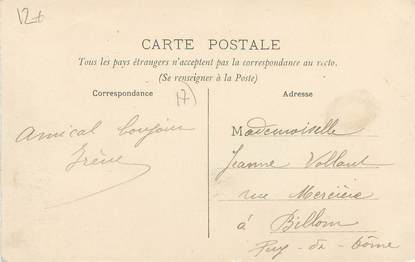 12+
CARTE POSTALE
Tous les pays étrangers n'acceptent pas la correspondance au recto.
(Se renseigner à la Poste)
Correspondance
17)
Adresse
Amical bonjour
Irène
Mademoiselle
Jeanne Vollant
rue Mercière
à Billom
Puy-de-Dôme